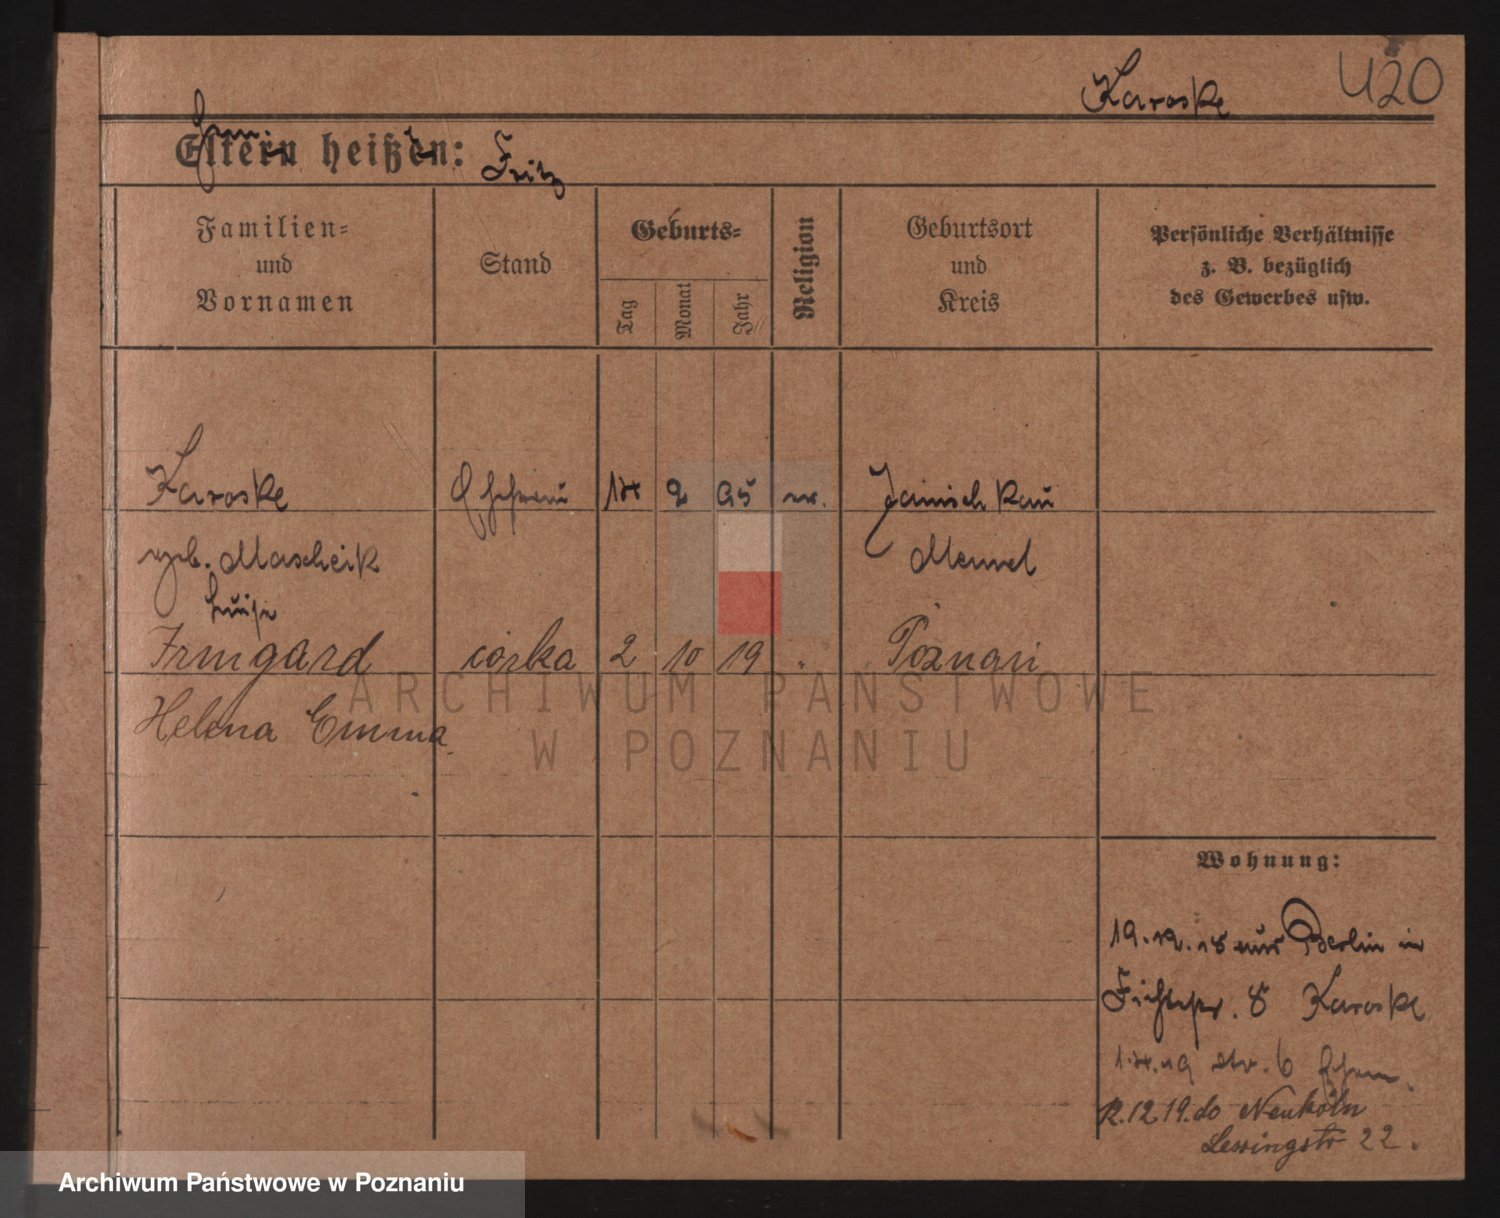 Karoske 420
Eltern heißen: Fritz
Familien= und Vornamen
Stand
Geburts=
Tag
Monat
Jahr
Religion
Geburtsort und Kreis
Persönliche Verhältnisse z. B. bezüglich des Gewerbes usw.
Karoske Ehefrau 2 95 ev.
geb. Mascheik Memel
Luise
Irmgard córka 2 10 19 " Poznań
Helena Emma
ARCHIWUM PAŃSTWOWE
W POZNANIU
Wohnung:
19.12.18 aus Berlin in
Fichtestr. 8 Karoske
6 Ehem.
12.12.19. do Neuköln
Lessingstr 22.
Archiwum Państwowe w Poznaniu